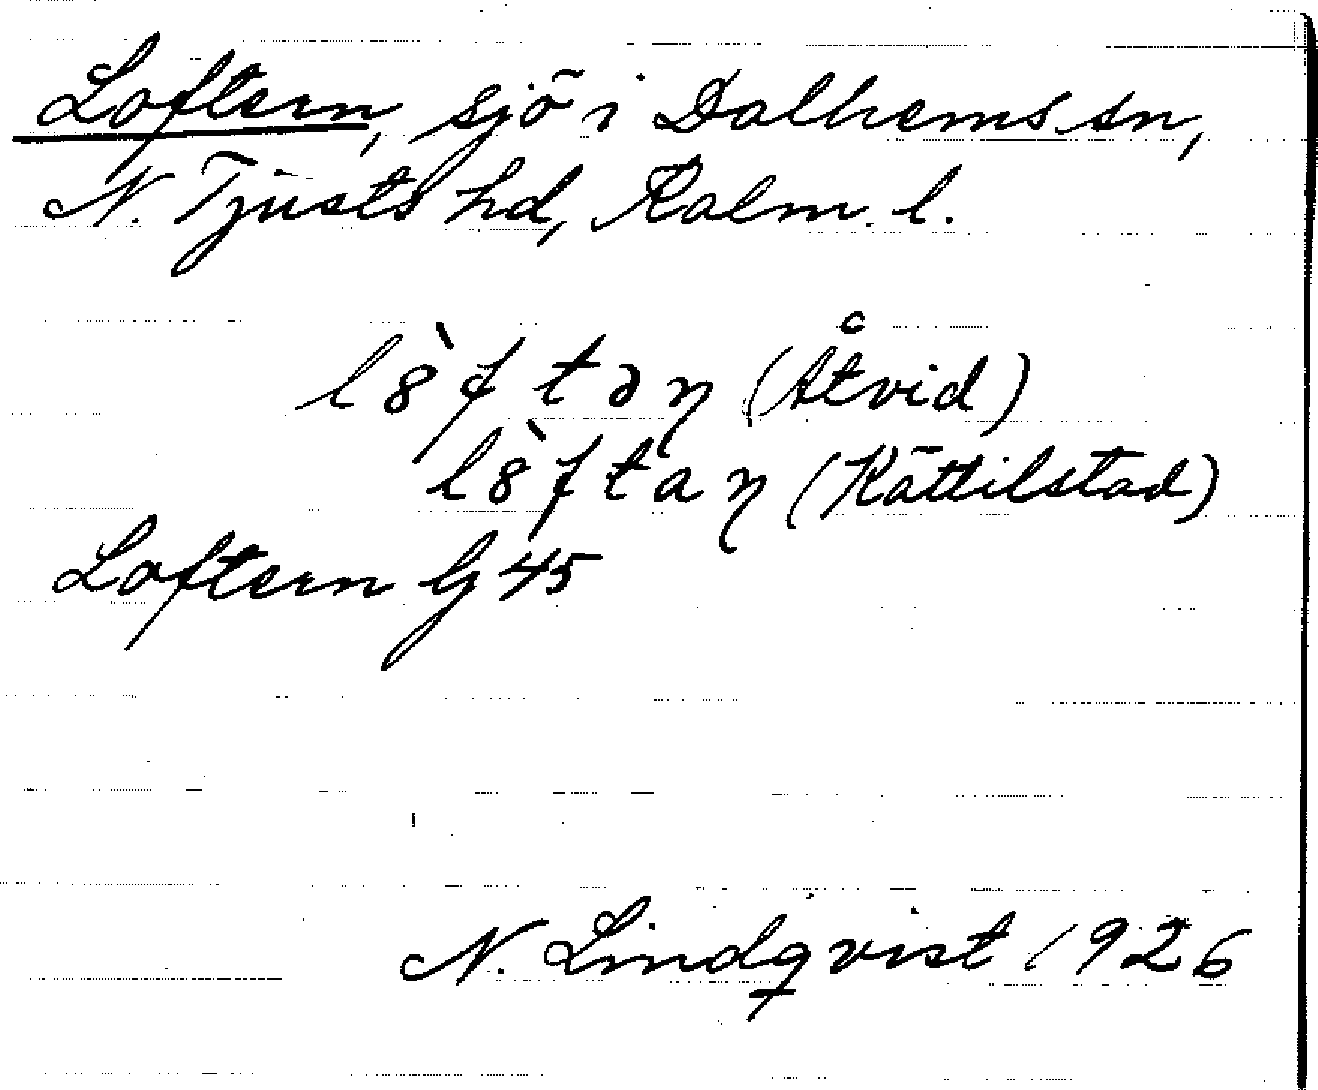 Loftern, sjö i Dalhems sn,
N. Tjusts hd, Kalm. l.
l8̀ftəŋ (Åtvid)
l8̀ftaŋ (Kättilstad)
Loftern G 45
N. Lindqvist 1926